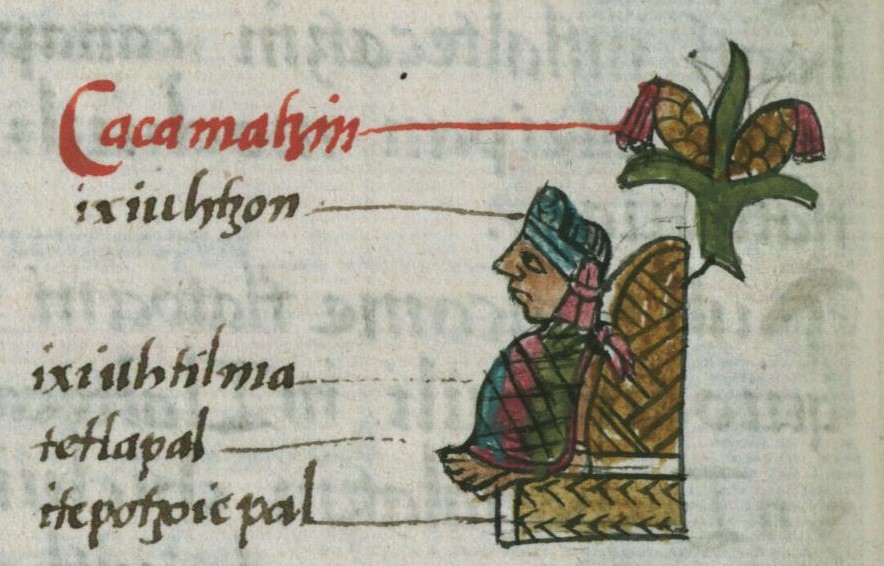 Cacamatzin
ixiuhtzon
ixiuhtilma
tetlapal
itepotzoicpal